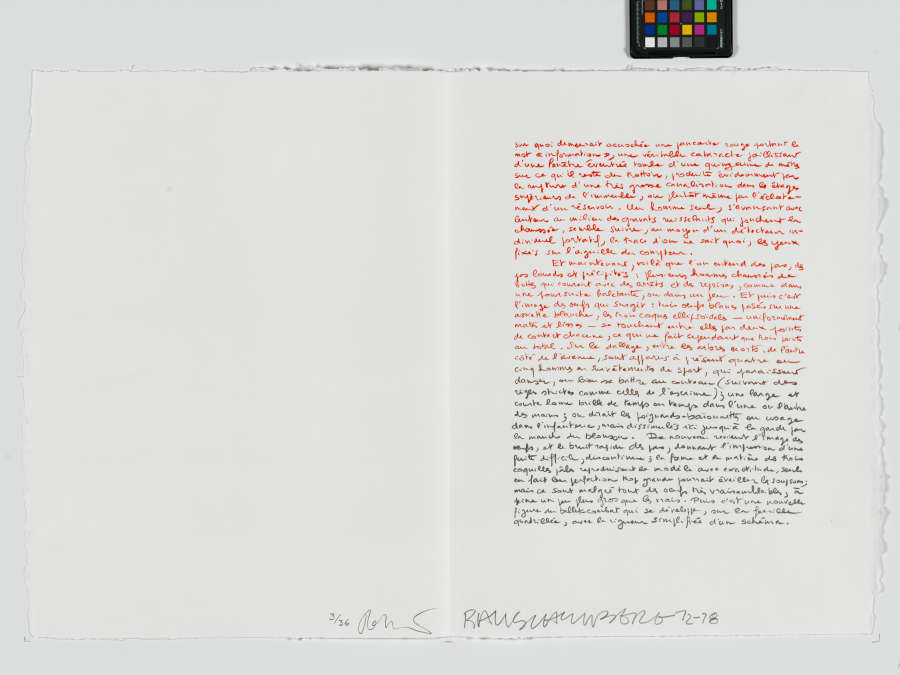 sur quoi demeurait accrochée une pancarte rouge portant le
mot « information », une véritable cataracte jaillissant
d'une fenêtre éventrée tombe d'une quinzaine de mètres
sur ce qu'il reste du trottoir, produite évidemment par
la rupture d'une très grosse canalisation dans les étages
supérieurs de l'immeuble, ou plutôt même par l'éclate-
ment d'un réservoir. Un homme seul, s'avançant avec
lenteur au milieu des gravats ruisselants qui jonchent la
chaussée, semble suivre, au moyen d'un détecteur in-
dividuel portatif, la trace d'on ne sait quoi, les yeux
fixés sur l'aiguille du compteur.
Et maintenant, voilà que l'on entend des pas, des
pas lourds et précipités ; plusieurs hommes chaussés de
bottes qui courent avec des arrêts et des reprises, comme dans
une poursuite haletante, ou dans un jeu. Et puis c'est
l'image des oeufs qui surgit : trois oeufs blancs posés sur une
assiette blanche, les trois coques ellipsoïdales — uniformément
mates et lisses — se touchant entre elles par deux points
de contact chacune, ce qui ne fait cependant que trois points
au total. Sur le dallage, entre les arbres morts, de l'autre
côté de l'avenue, sont apparus à présent quatre ou
cinq hommes en survêtements de sport, qui paraissent
danser, ou bien se battre au couteau (suivant des
règles strictes comme celles de l'escrime) ; une large et
courte lame brille de temps en temps dans l'une ou l'autre
des mains ; on dirait les poignards-baïonnettes en usage
dans l'infanterie, mais dissimulés ici jusqu'à la garde par
la manche du blouson. De nouveau revient l'image des
oeufs, et le bruit rapide des pas, donnant l'impression d'une
fuite difficile, discontinue ; la forme et la matière des trois
coquilles pâles reproduisent le modèle avec exactitude, seule
en fait leur perfection trop grande pourrait éveiller les soupçons ;
mais ce sont malgré tout des oeufs très vraisemblables, à
peine un peu plus gros que les vrais. Puis c'est une nouvelle
figure du ballet-combat qui se développe, sur la feuille
quadrillée, avec la rigueur simplifiée d'un schéma.
3/36 RAUSCHENBERG 72-78